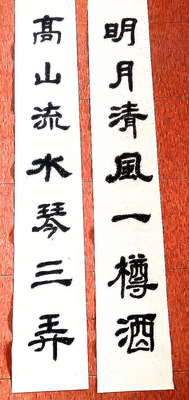 明月清風一樽酒
高山流水琴三弄